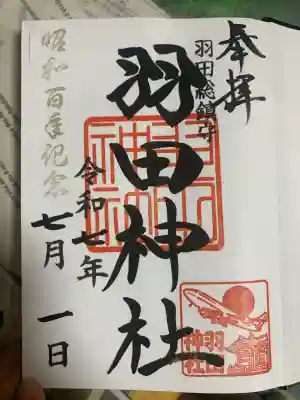 奉拝
羽田総鎮守
羽田神社
令和七年
七月 一日
昭和百年記念
羽田
神社